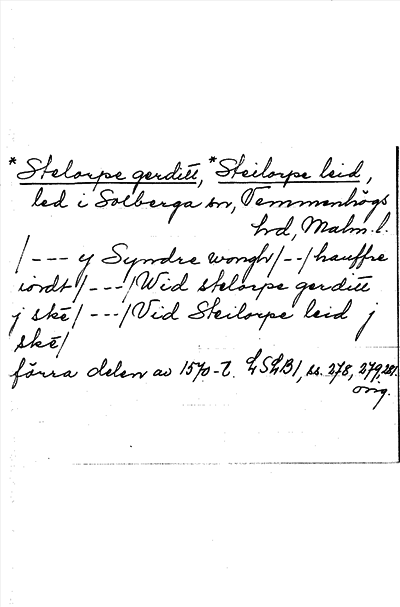 *Stelorpe gerditt, *Steilorpe leid,
led i Solberga sn, Vemmenhögs
hd, Malm. l.
/--- y Syndre wongh/--/hauffre
iordt/---/Wid stelorpe gerditt
j skē/---/Vid Steilorpe leid j
skē/
förra delen av 1570-t. LSLB1, ss. 278, 279, 281.
orig.